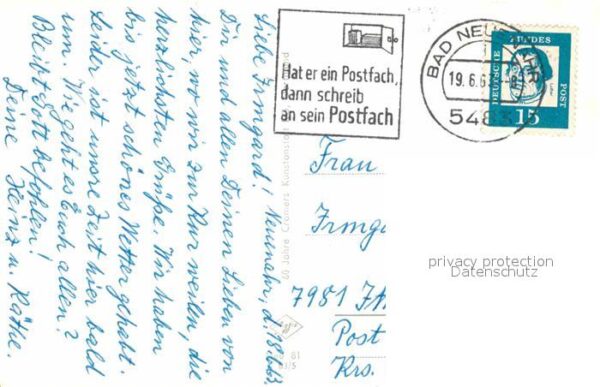 Liebe Irmgard! Neuenahr, d. 18.6.63.
Dir und allen Deinen Lieben von
hier, wo wir zur Kur weilen, die
herzlichsten Grüße. Wir haben
bis jetzt schönes Wetter gehabt.
Leider ist unsre Zeit hier bald
um. Wie geht es Euch allen?
Bleibt Gott befohlen!
Deine Heinz u. Käthe.
60 Jahre Cramers Kunstanstalt
Hat er ein Postfach,
dann schreib
an sein Postfach
BAD NEUENAHR
19.6.63
5483
DEUTSCHE BUNDES POST
15
Frau
Irmga
7981
Post
Krs.
81
privacy protection
Datenschutz